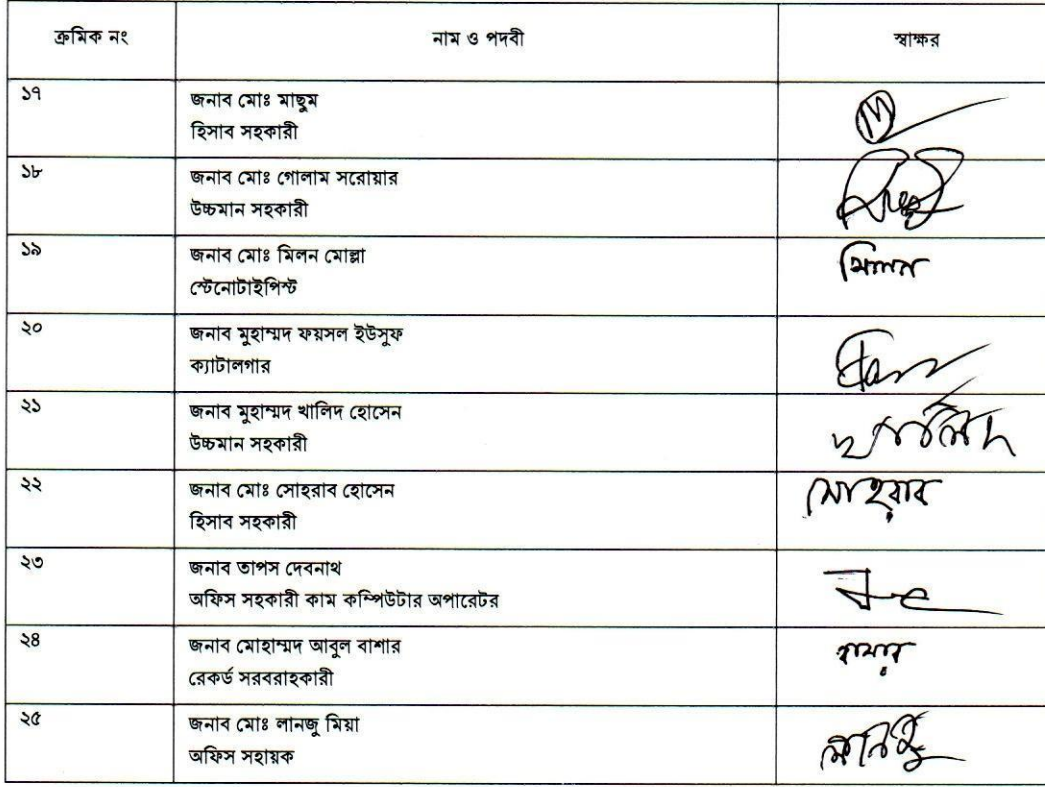 ক্রমিক নং নাম ও পদবী স্বাক্ষর
১৭ জনাব মোঃ মাছুম
হিসাব সহকারী
১৮ জনাব মোঃ গোলাম সরোয়ার
উচ্চমান সহকারী
১৯ জনাব মোঃ মিলন মোল্লা মিলন
স্টেনোটাইপিস্ট
২০ জনাব মুহাম্মদ ফয়সল ইউসুফ
ক্যাটালগার
২১ জনাব মুহাম্মদ খালিদ হোসেন খালিদ
উচ্চমান সহকারী
২২ জনাব মোঃ সোহরাব হোসেন সোহরাব
হিসাব সহকারী
২৩ জনাব তাপস দেবনাথ
অফিস সহকারী কাম কম্পিউটার অপারেটর
২৪ জনাব মোহাম্মদ আবুল বাশার বাশার
রেকর্ড সরবরাহকারী
২৫ জনাব মোঃ লানজু মিয়া লানজু
অফিস সহায়ক